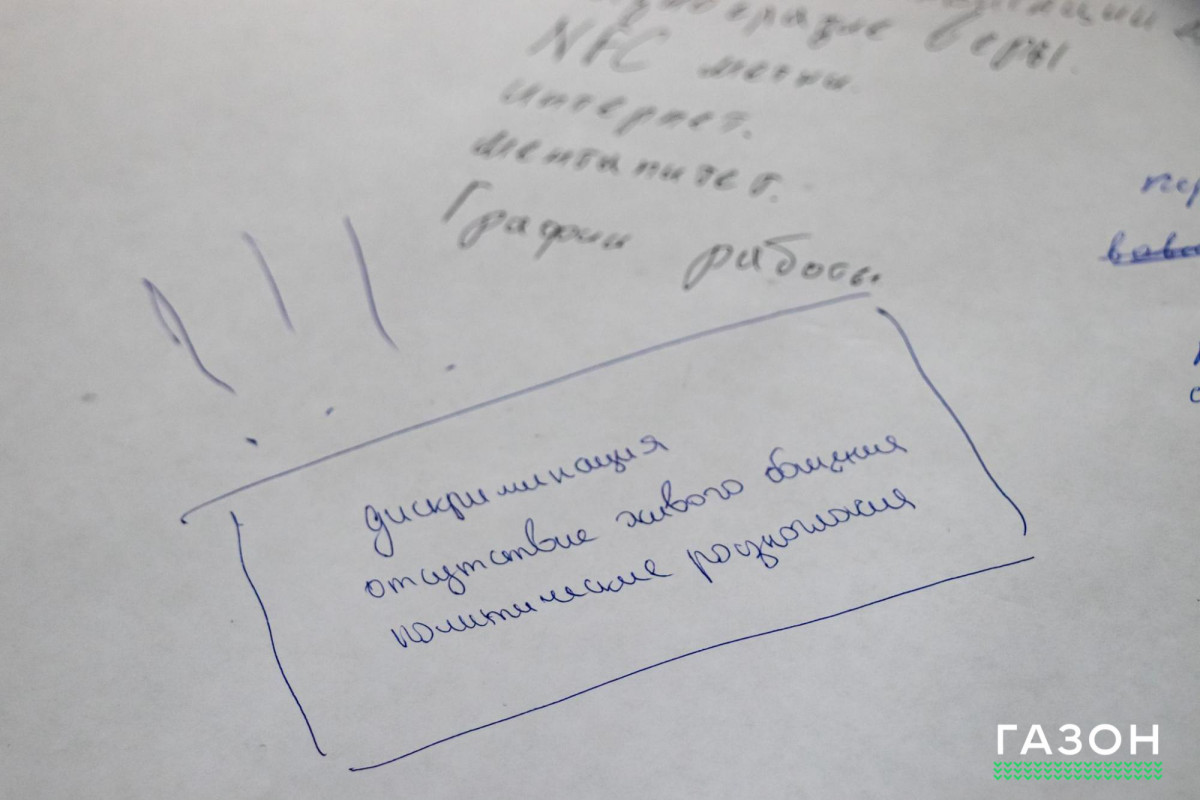 веры.
NFC метки
интернет.
менталитет.
График работы.
! ! !
дискриминация
отсутствие живого общения
политические разногласия
ГАЗОН